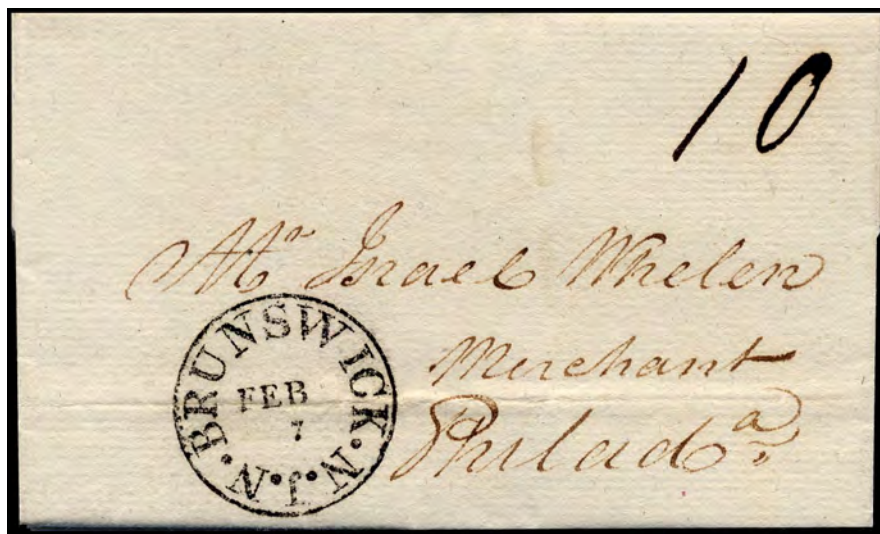 10
Mr Israel Whelen
Merchant
Philada
N. BRUNSWICK. N. J.
FEB
7